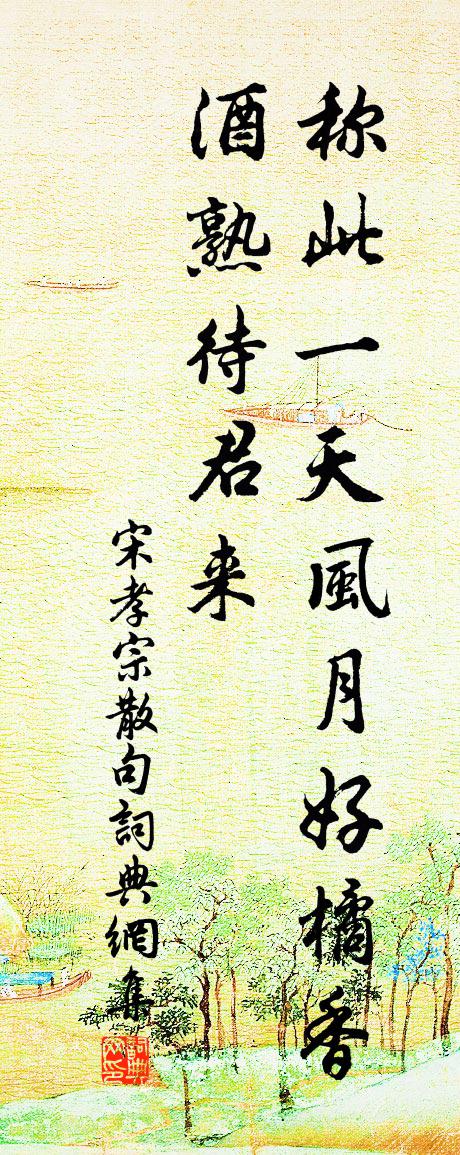 称此一天風月好橘香
酒熟待君来
宋孝宗散句詞典網集